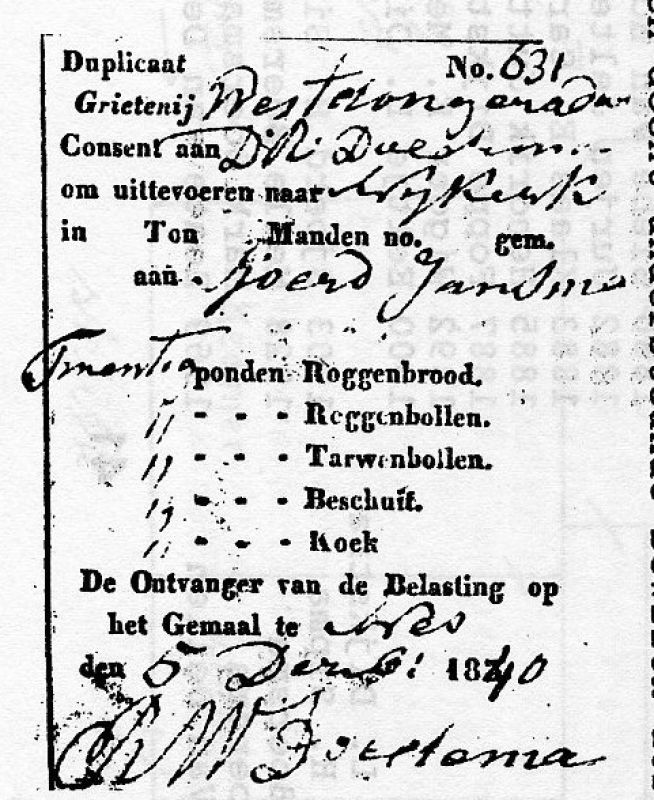 Duplicaat No. 631
Grietenij Westdongeradeel
Consent aan D. R.
om uittevoeren naar Nijkerk
in Ton Manden no. gem.
aan Sjoerd Jansma
Twentig ponden Roggenbrood.
" - - - Roggenbollen.
" - - - Tarwenbollen.
" - - - Beschuit.
" - - - Koek
De Ontvanger van de Belasting op
het Gemaal te Nes
den 5 Decb: 1840